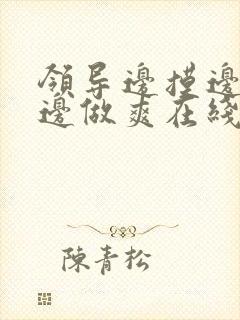 领导邊摸邊
邊做爽在綫
陳青松